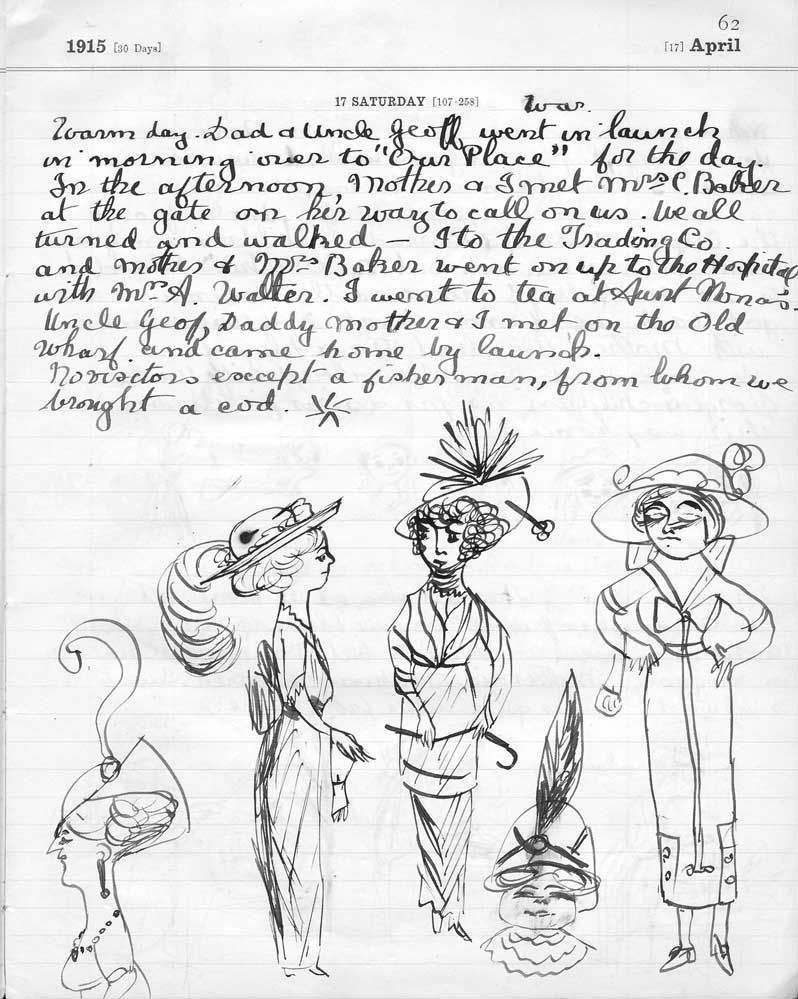 62
1915 [30 Days] [17] April
17 SATURDAY [107-258] War.
Warm day. Dad & Uncle Geoff went in launch
in morning over to "Our Place" for the day.
In the afternoon, Mother & I met Mrs C. Baker
at the gate on her way to call on us. We all
turned and walked – I to the Trading Co.
and Mother & Mrs Baker went on up to the Hospital
with Mrs A. Walter. I went to tea at Aunt Nona's.
Uncle Geof, Daddy Mother & I met on the Old
Wharf and came home by launch.
No visitors except a fisherman, from whom we
brought a cod.